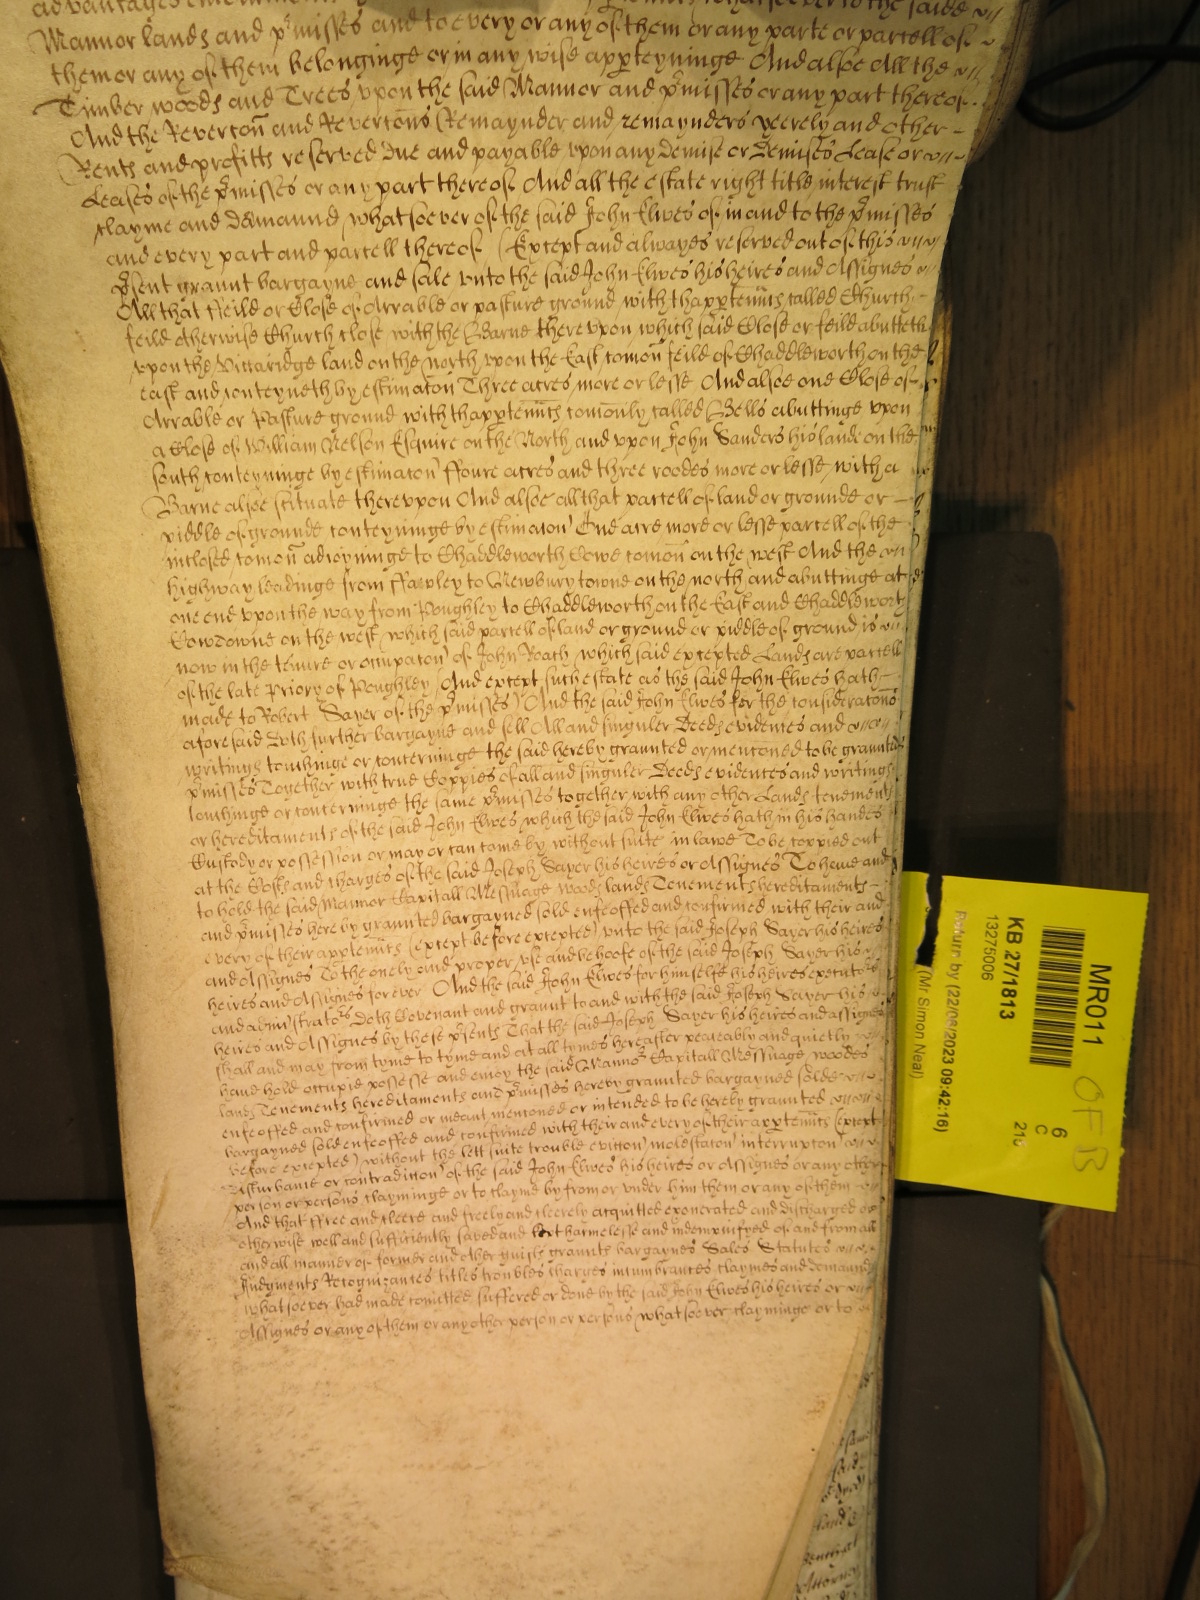 Mannor lands and p'misses and to every or any of them or any parte or parcell of
them or any of them belonginge or in any wise app'teyninge And alsoe All the
Timber woods and Trees vpon the said Mannor and p'misses or any part thereof
And the Revercōn and Revercōns Remaynder and remaynders yeerely and other
Rents and profitts reserved due and payable vpon any demise or demises Lease or
Leases of the p'misses or any part thereof And all the estate right title interest trust
clayme and demaund whatsoever of the said John Elwes of in and to the p'misses
and every part and parcell thereof (Except and alwayes reserved out of this
p'sent graunt bargayne and sale vnto the said John Elwes his heires and Assignes
All that Feild or Close of Arrable or pasture ground with thapp'tenncs called Church
feild otherwise Church close with the Barne therevpon which said Close or feild abutteth
vpon the Viccaridge land on the North vpon the East comōn feild of Chaddleworth on the
east and conteyneth by estimacōn Three acres more or lesse And alsoe one Close of
Arrable or Pasture ground with thapp'tenncs comōnly called Bells abuttinge vpon
a Close of William Nelson Esquire on the North and vpon John Sanders his lande on the
south conteyninge by estimacōn ffoure acres and three roodes more or lesse with a
Barne alsoe scituate therevpon And alsoe all that parcell of land or grounde or
piddle of grounde conteyninge by estimacōn One acre more or lesse parcell of the
inclosed comōn adioyninge to Chaddleworth Cowe comōn on the west And the
highway leadinge from ffawley to Newbury towne on the north and abuttinge at
one end vpon the way from Poughley to Chaddleworth on the East and Chaddleworth
Cowdowne on the west which said parcell of land or ground or piddle of ground is
now in the tenure or occupacōn of John Roach which said excepted Lands are parcell
of the late Priory of Poughley And except such estate as the said John Elwes hath
made to Robert Sayer of the p'misses) And the said John Elwes for the consideracōns
aforesaid Doth further bargayne and sell All and singuler Deeds evidences and
writings touchinge or concerninge the said hereby graunted or mencōned to be graunted
p'misses Together with true Coppies of all and singuler Deeds evidences and writings
touchinge or concerninge the same p'misses together with any other Lands tenements
or hereditaments of the said John Elwes which the said John Elwes hath in his handes
Custody or possession or may or can come by without suite in lawe To be coppied out
at the Costs and charges of the said Joseph Sayer his heires or Assignes To have and
to hold the said Mannor Capitall Messuage woods lands Tenements hereditaments
and p'misses hereby graunted bargayned sold enfeoffed and confirmed with their and
every of their app'tenncs (except before excepted) vnto the said Joseph Sayer his heires
and Assignes To the onely and proper vse and behoofe of the said Joseph Sayer his
heires and Assignes forever And the said John Elwes for himselfe his heires executors
and admi'strators Doth Covenant and graunt to and with the said Joseph Sayer his
heires and Assignes by these p'sents That the said Joseph Sayer his heires and assignes
shall and may from tyme to tyme and at all tymes hereafter peaceably and quietly
have hold occupie possesse and enioy the said Mannor Capitall Messuage woodes
lands Tenements hereditaments and p'misses hereby graunted bargayned solde
enfeoffed and confirmed or meant mentioned or intended to be hereby graunted
bargayned sold enfeoffed and confirmed with their and every of their app'tenncs (except
before excepted) without the lett suite trouble eviccōn molestacōn interrupcōn
disturbance or contradiccōn of the said John Elwes his heires or Assignes or any other
person or persons clayminge or to clayme by from or vnder him them or any of them
And that ffree and cleere and freely and cleerely acquitted exonerated and discharged or
otherwise well and sufficiently saved and kept harmelesse and indempnifyed of and from all
and all manner of former and other guifts graunts bargaynes Sales Statutes
Judgments Recognizances titles troubles charges incumbrances claymes and demaunds
whatsoever had made comitted suffered or done by the said John Elwes his heires or
Assignes or any of them or any other person or persons whatsoever clayminge or to
MR011
KB 27/1813
13275006
Return by (22/06/2023 09:42:16)
(Mr Simon Neal)
6
C
OF B